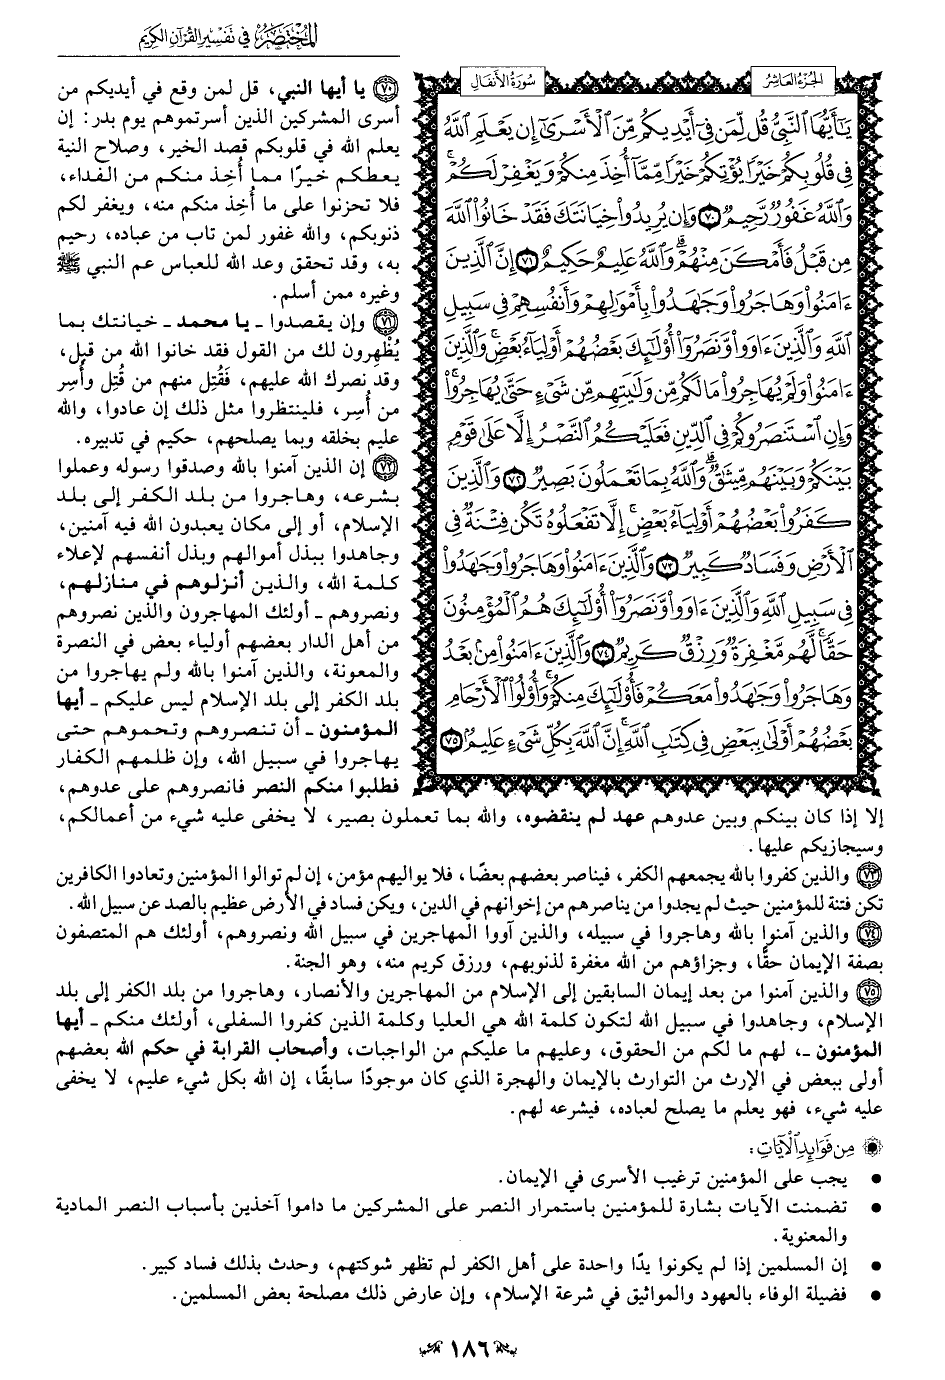 المختصر في تفسير القرآن الكريم
الجزء العاشر
سورة الأنفال
يَٰٓأَيُّهَا ٱلنَّبِيُّ قُل لِّمَن فِيٓ أَيۡدِيكُم مِّنَ ٱلۡأَسۡرَىٰٓ إِن يَعۡلَمِ ٱللَّهُ
فِي قُلُوبِكُمۡ خَيۡرٗا يُؤۡتِكُمۡ خَيۡرٗا مِّمَّآ أُخِذَ مِنكُمۡ وَيَغۡفِرۡ لَكُمۡۚ
وَٱللَّهُ غَفُورٞ رَّحِيمٞ ٧٠ وَإِن يُرِيدُواْ خِيَانَتَكَ فَقَدۡ خَانُواْ ٱللَّهَ
مِن قَبۡلُ فَأَمۡكَنَ مِنۡهُمۡۗ وَٱللَّهُ عَلِيمٌ حَكِيمٌ ٧١ إِنَّ ٱلَّذِينَ
ءَامَنُواْ وَهَاجَرُواْ وَجَٰهَدُواْ بِأَمۡوَٰلِهِمۡ وَأَنفُسِهِمۡ فِي سَبِيلِ
ٱللَّهِ وَٱلَّذِينَ ءَاوَواْ وَّنَصَرُوٓاْ أُوْلَٰٓئِكَ بَعۡضُهُمۡ أَوۡلِيَآءُ بَعۡضٖۚ وَٱلَّذِينَ
ءَامَنُواْ وَلَمۡ يُهَاجِرُواْ مَا لَكُم مِّن وَلَٰيَتِهِم مِّن شَيۡءٍ حَتَّىٰ يُهَاجِرُواْۚ
وَإِنِ ٱسۡتَنصَرُوكُمۡ فِي ٱلدِّينِ فَعَلَيۡكُمُ ٱلنَّصۡرُ إِلَّا عَلَىٰ قَوۡمِۭ
بَيۡنَكُمۡ وَبَيۡنَهُم مِّيثَٰقٞۗ وَٱللَّهُ بِمَا تَعۡمَلُونَ بَصِيرٞ ٧٢ وَٱلَّذِينَ
كَفَرُواْ بَعۡضُهُمۡ أَوۡلِيَآءُ بَعۡضٍۚ إِلَّا تَفۡعَلُوهُ تَكُن فِتۡنَةٞ فِي
ٱلۡأَرۡضِ وَفَسَادٞ كَبِيرٞ ٧٣ وَٱلَّذِينَ ءَامَنُواْ وَهَاجَرُواْ وَجَٰهَدُواْ
فِي سَبِيلِ ٱللَّهِ وَٱلَّذِينَ ءَاوَواْ وَّنَصَرُوٓاْ أُوْلَٰٓئِكَ هُمُ ٱلۡمُؤۡمِنُونَ
حَقّٗاۚ لَّهُم مَّغۡفِرَةٞ وَرِزۡقٞ كَرِيمٞ ٧٤ وَٱلَّذِينَ ءَامَنُواْ مِنۢ بَعۡدُ
وَهَاجَرُواْ وَجَٰهَدُواْ مَعَكُمۡ فَأُوْلَٰٓئِكَ مِنكُمۡۚ وَأُوْلُواْ ٱلۡأَرۡحَامِ
بَعۡضُهُمۡ أَوۡلَىٰ بِبَعۡضٖ فِي كِتَٰبِ ٱللَّهِۚ إِنَّ ٱللَّهَ بِكُلِّ شَيۡءٍ عَلِيمُۢ ٧٥
٧٠ يا أيها النبي، قل لمن وقع في أيديكم من
أسرى المشركين الذين أسرتموهم يوم بدر: إن
يعلم الله في قلوبكم قصد الخير، وصلاح النية
يعطكم خيرًا مما أُخِذ منكم من الفداء،
فلا تحزنوا على ما أُخِذ منكم منه، ويغفر لكم
ذنوبكم، والله غفور لمن تاب من عباده، رحيم
به، وقد تحقق وعد الله للعباس عم النبي ﷺ
وغيره ممن أسلم.
٧١ وإن يقصدوا ـ يا محمد ـ خيانتك بما
يُظْهِرون لك من القول فقد خانوا الله من قبل،
وقد نصرك الله عليهم، فَقُتِل منهم من قُتِل وأُسِر
من أُسِر، فلينتظروا مثل ذلك إن عادوا، والله
عليم بخلقه وبما يصلحهم، حكيم في تدبيره.
٧٢ إن الذين آمنوا بالله وصدقوا رسوله وعملوا
بشرعه، وهاجروا من بلد الكفر إلى بلد
الإسلام، أو إلى مكان يعبدون الله فيه آمنين،
وجاهدوا ببذل أموالهم وبذل أنفسهم لإعلاء
كلمة الله، والذين أنزلوهم في منازلهم،
ونصروهم ـ أولئك المهاجرون والذين نصروهم
من أهل الدار بعضهم أولياء بعض في النصرة
والمعونة، والذين آمنوا بالله ولم يهاجروا من
بلد الكفر إلى بلد الإسلام ليس عليكم ـ أيها
المؤمنون ـ أن تنصروهم وتحموهم حتى
يهاجروا في سبيل الله، وإن ظلمهم الكفار
فطلبوا منكم النصر فانصروهم على عدوهم،
إلا إذا كان بينكم وبين عدوهم عهد لم ينقضوه، والله بما تعملون بصير، لا يخفى عليه شيء من أعمالكم،
وسيجازيكم عليها.
٧٣ والذين كفروا بالله يجمعهم الكفر، فيناصر بعضهم بعضًا، فلا يواليهم مؤمن، إن لم توالوا المؤمنين وتعادوا الكافرين
تكن فتنة للمؤمنين حيث لم يجدوا من يناصرهم من إخوانهم في الدين، ويكن فساد في الأرض عظيم بالصد عن سبيل الله.
٧٤ والذين آمنوا بالله وهاجروا في سبيله، والذين آووا المهاجرين في سبيل الله ونصروهم، أولئك هم المتصفون
بصفة الإيمان حقًّا، وجزاؤهم من الله مغفرة لذنوبهم، ورزق كريم منه، وهو الجنة.
٧٥ والذين آمنوا من بعد إيمان السابقين إلى الإسلام من المهاجرين والأنصار، وهاجروا من بلد الكفر إلى بلد
الإسلام، وجاهدوا في سبيل الله لتكون كلمة الله هي العليا وكلمة الذين كفروا السفلى، أولئك منكم ـ أيها
المؤمنون ـ، لهم ما لكم من الحقوق، وعليهم ما عليكم من الواجبات، وأصحاب القرابة في حكم الله بعضهم
أولى ببعض في الإرث من التوارث بالإيمان والهجرة الذي كان موجودًا سابقًا، إن الله بكل شيء عليم، لا يخفى
عليه شيء، فهو يعلم ما يصلح لعباده، فيشرعه لهم.
من فوائد الآيات:
• يجب على المؤمنين ترغيب الأسرى في الإيمان.
• تضمنت الآيات بشارة للمؤمنين باستمرار النصر على المشركين ما داموا آخذين بأسباب النصر المادية
والمعنوية.
• إن المسلمين إذا لم يكونوا يدًا واحدة على أهل الكفر لم تظهر شوكتهم، وحدث بذلك فساد كبير.
• فضيلة الوفاء بالعهود والمواثيق في شرعة الإسلام، وإن عارض ذلك مصلحة بعض المسلمين.
١٨٦